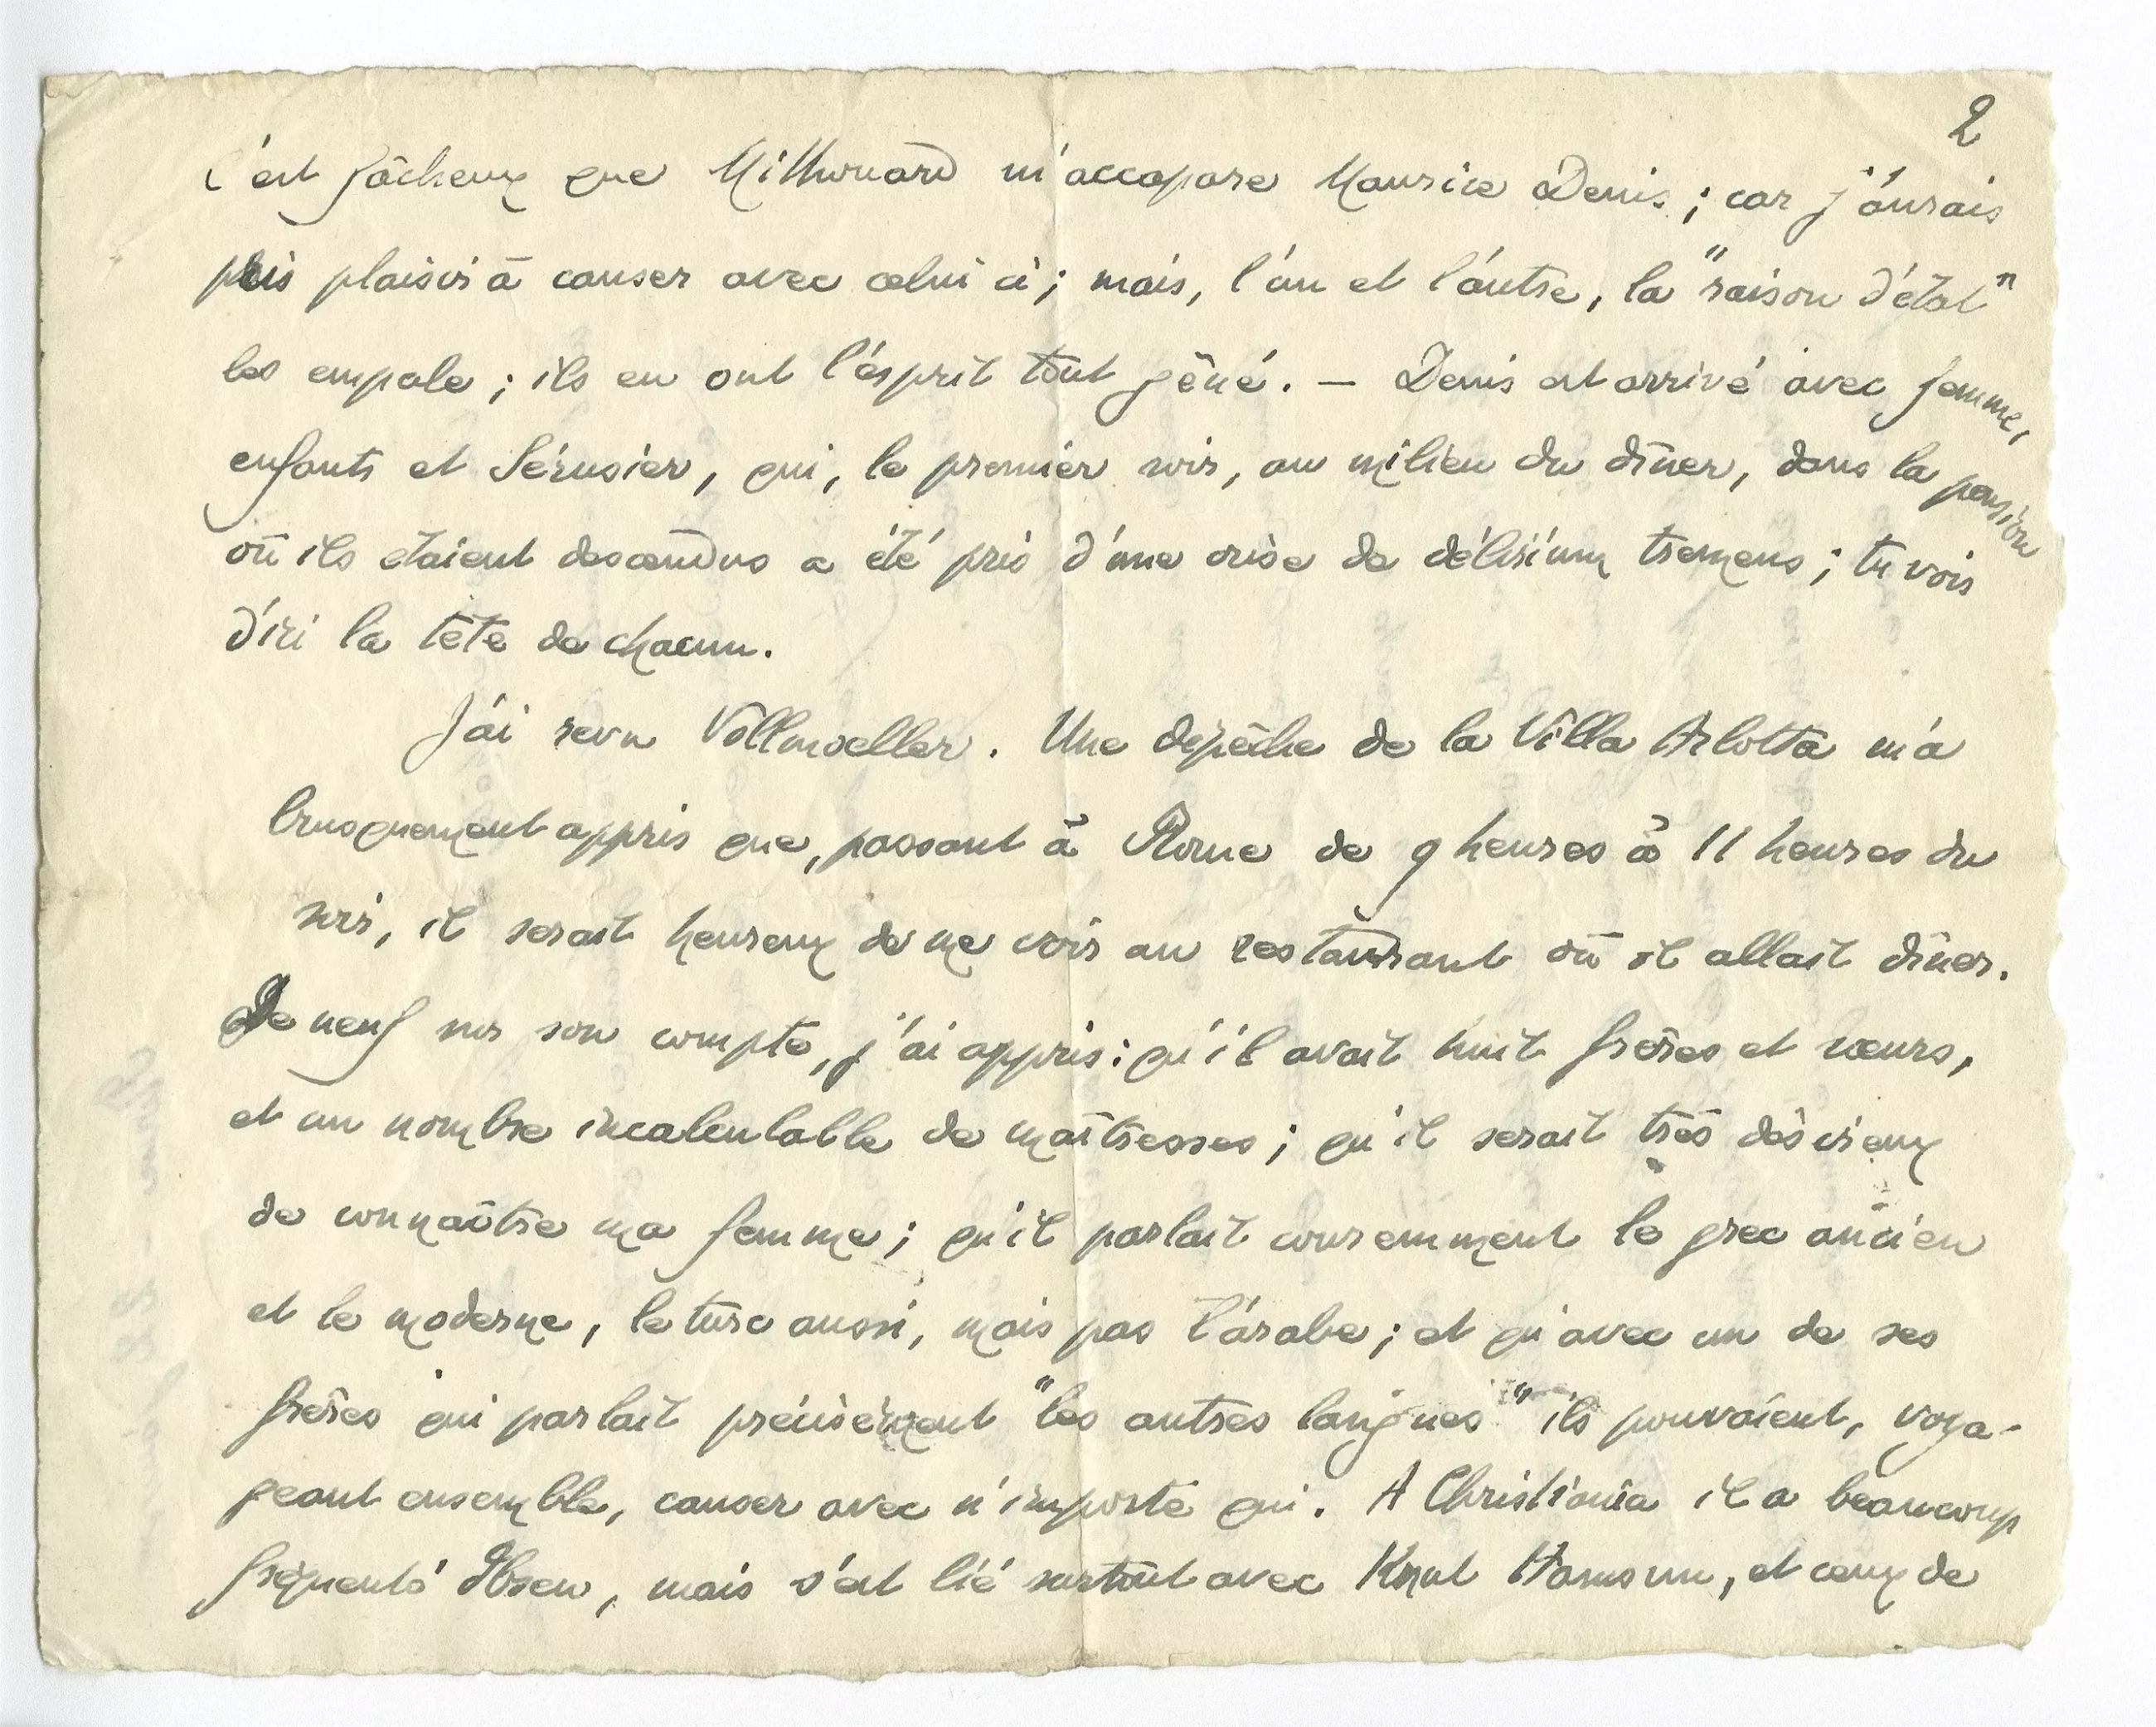 2
c'est fâcheux que Mithouard m'accapare Maurice Denis ; car j'aurais
pris plaisir à causer avec celui ci ; mais, l'un et l'autre, la "raison d'état"
les empale ; ils en ont l'esprit tout gêné. — Denis est arrivé avec femme,
enfants et Sérusier, qui, le premier soir, au milieu du dîner, dans la pension
où ils étaient descendus a été pris d'une crise de délirium tremens ; tu vois
d'ici la tête de chacun.
J'ai revu Vollmoeller. Une dépêche de la Villa Arlotta m'a
brusquement appris que, passant à Rome de 9 heures à 11 heures du
soir, il serait heureux de me voir au restaurant où il allait dîner.
De neuf sur son compte, j'ai appris : qu'il avait huit frères et sœurs,
et un nombre incalculable de maîtresses ; qu'il serait très désireux
de connaître ma femme ; qu'il parlait couremment le grec ancien
et le moderne, le turc aussi, mais pas l'arabe ; et qu'avec un de ses
frères qui parlait précisément "les autres langues" ils pouvaient, voya-
geant ensemble, causer avec n'importe qui. A Christiania il a beaucoup
fréquenté Ibsen, mais s'est lié surtout avec Knut Hamsun, et ceux de